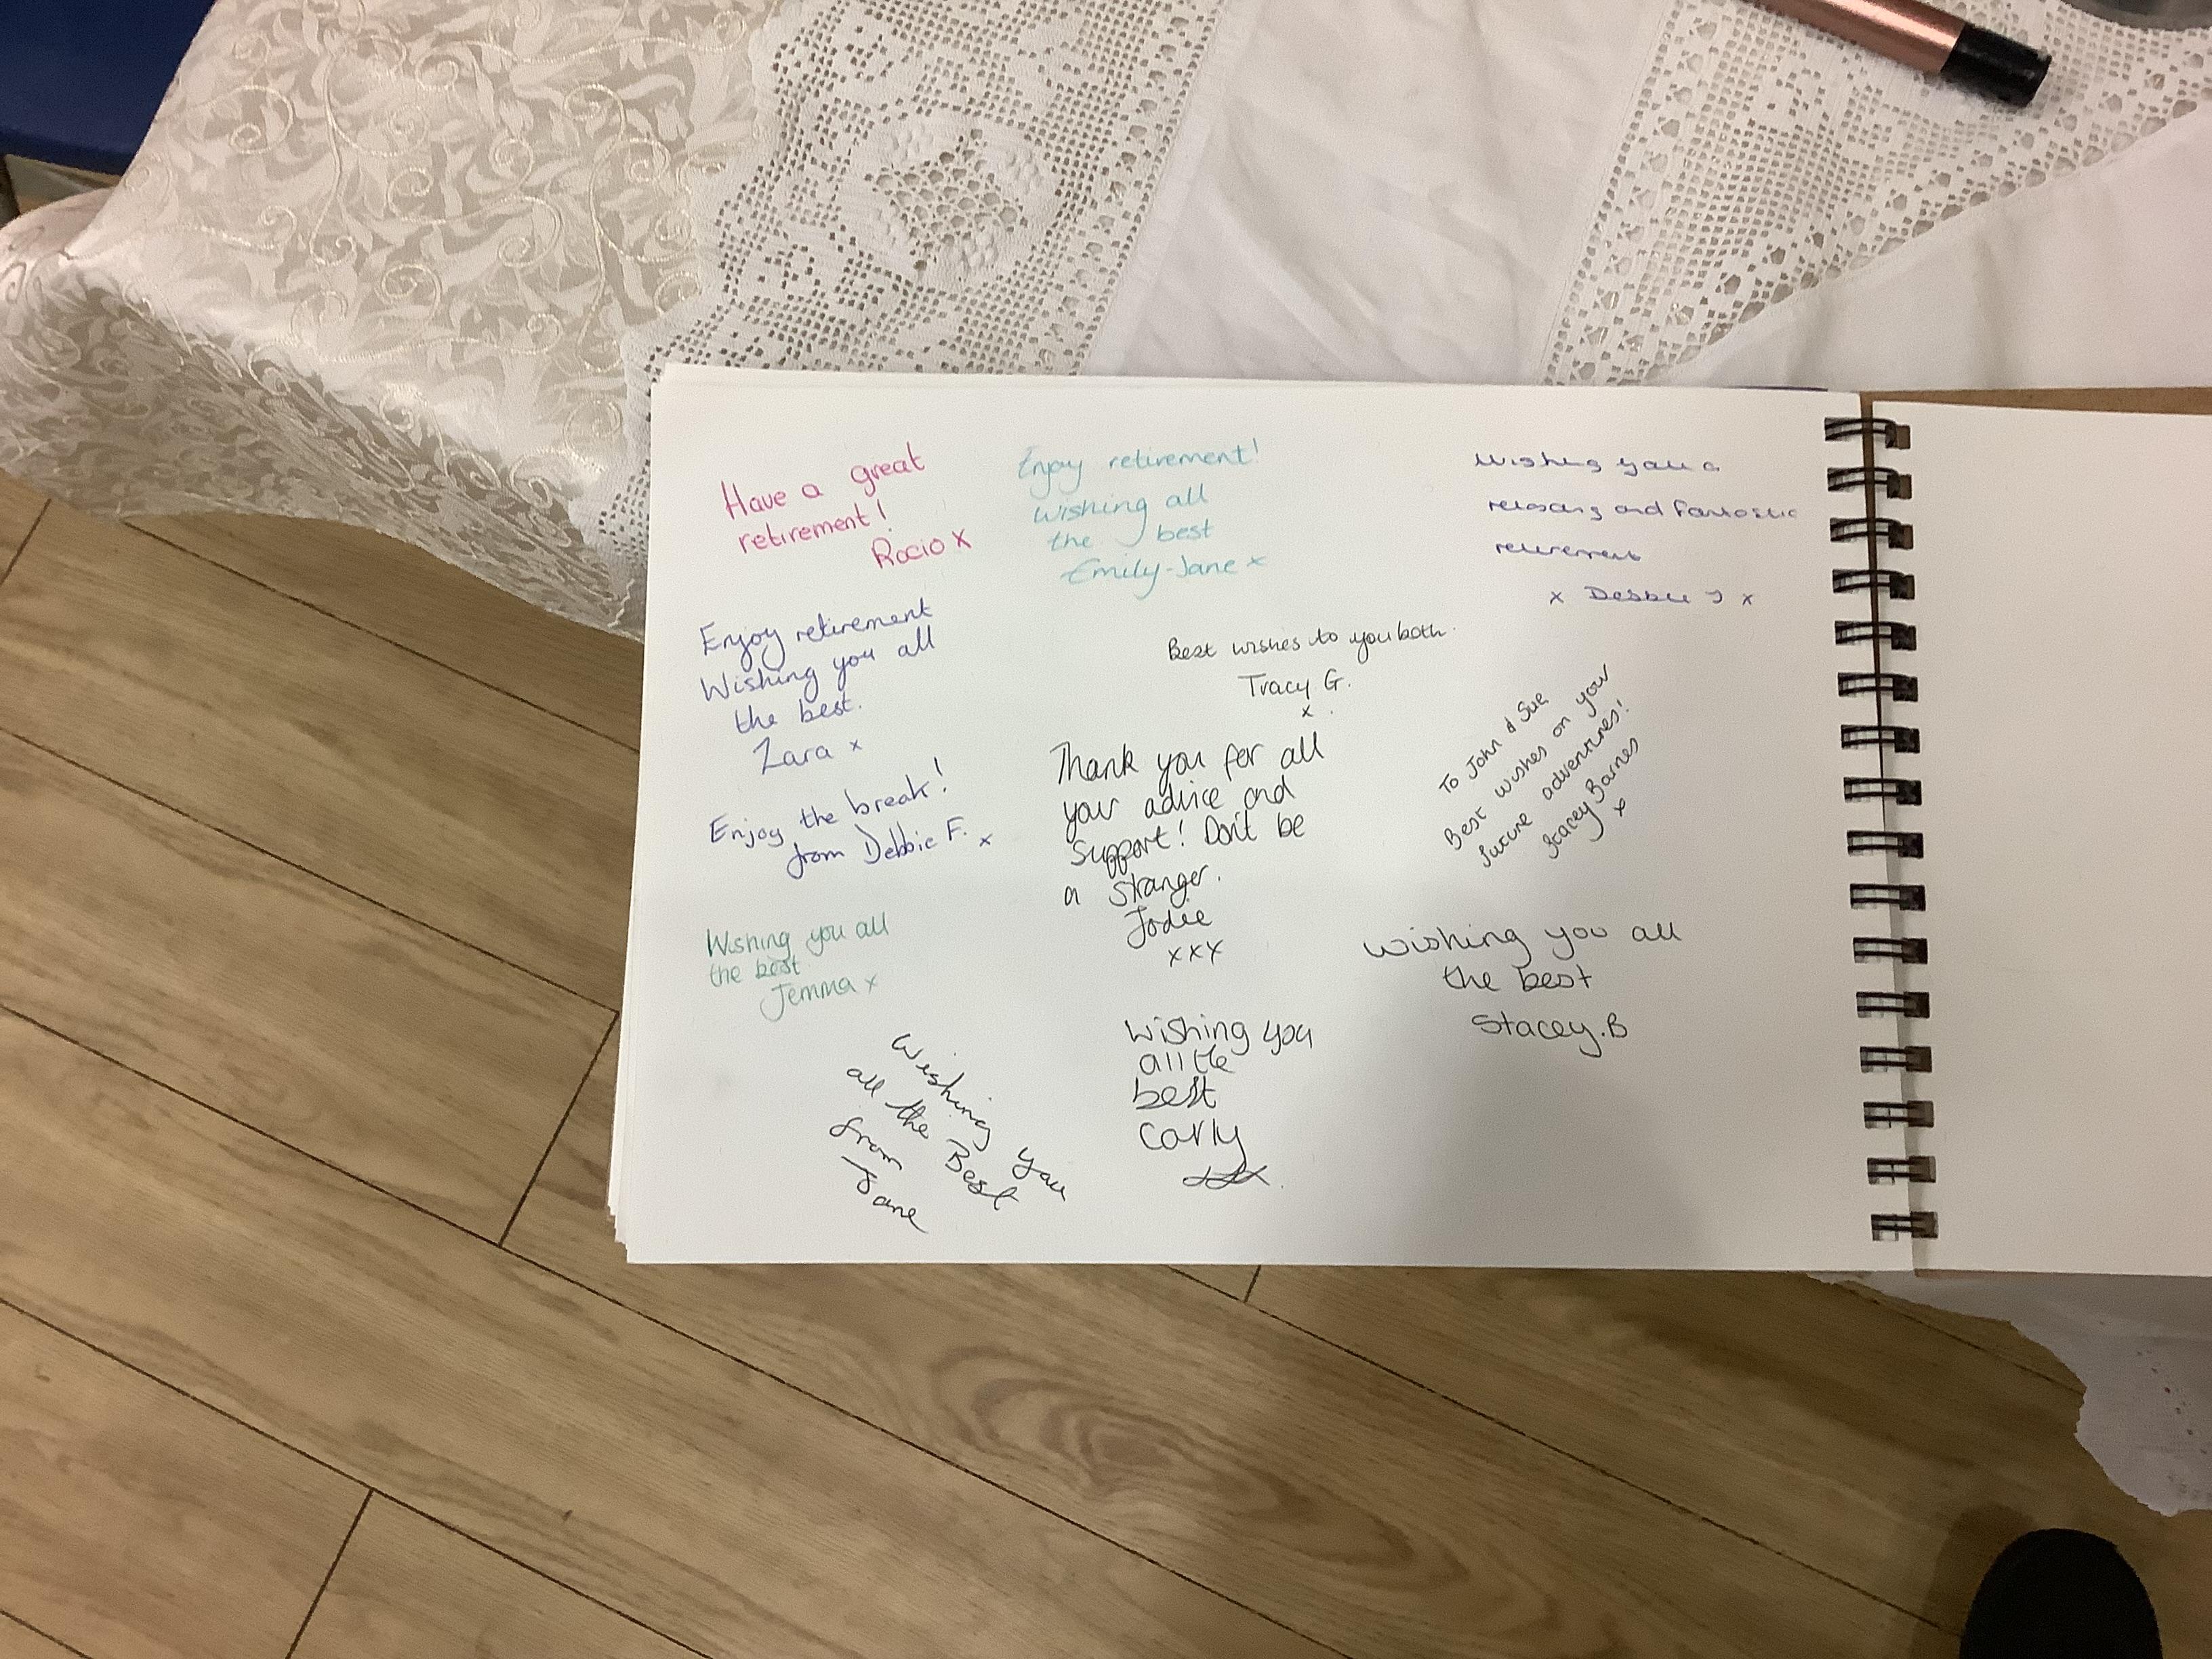 Have a great
retirement!
Rocio x
Enjoy retirement!
wishing all
the best
Emily-Jane x
wishing you a
relaxing and fantastic
retirement
x Debbie J x
Enjoy retirement
Wishing you all
the best.
Zara x
Best wishes to you both.
Tracy G.
x
To John & Sue
Best wishes on your
future adventures!
Stacey Barnes
x
Enjoy the break!
from Debbie F. x
Thank you for all
your advice and
support! Don't be
a stranger.
Jodie
xxx
Wishing you all
the best
Jemma x
wishing you all
the best
Stacey.B
Wishing you
all the Best
from
Jane
wishing you
all the
best
Carly
xxx.